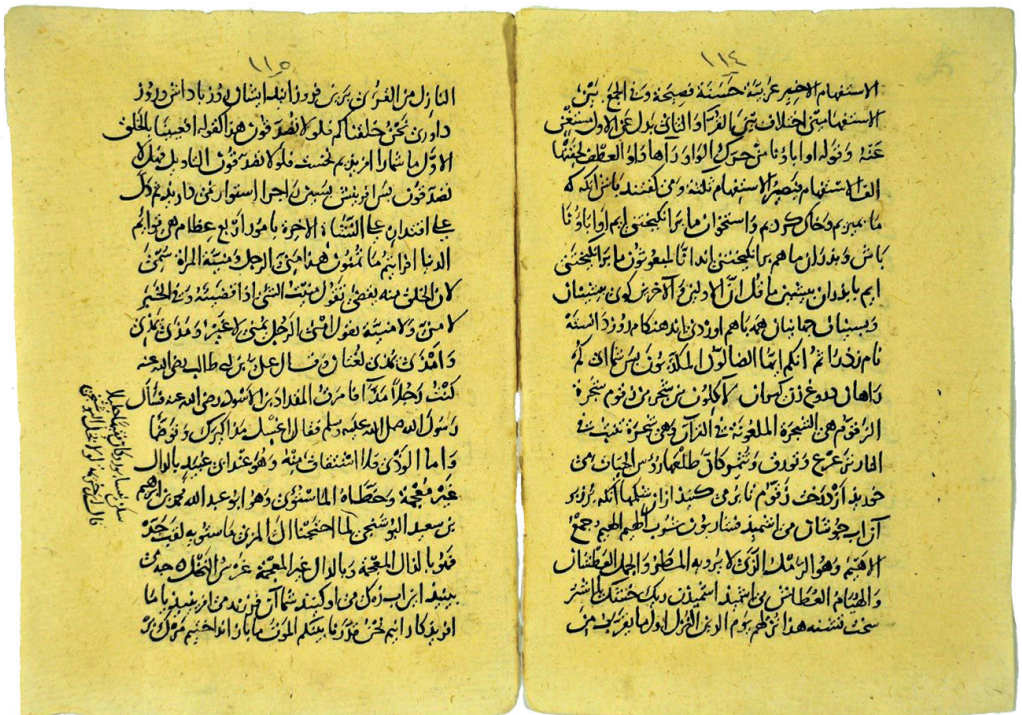 ١١٤
الاستفهام الاخير عربية حسنة فصيحة وفي الجمع بين
الاستفهامين اختلاف بين القراء والثاني بدل عن الاول مستغنى
عنه وقوله اواباونا من حرك الواو رآها واو العطف لحقتها
الف الاستفهام فيصير الاستفهام ثلثة ومي كفتند باش انكه كه
ما بميريم وخاك كرديم واستخوان ما برانكيختني ايم اواباونا
باش وبدران ما هم برانكيختني اند ائنا لمبعوثون ما برانكيختني
ايم با بدران بيشين ما قل ان الاولين والآخرين كوي بيشينان
وبسينان جهانيان همه باهم اوردني اند هنكام روز دانسته
نام زدرا ثم انكم ايها الضالون المكذبون بس شما اي كم
راهان دروغ زن كيران لآكلون من شجر من زقوم شجرة
الزقوم هي الشجرة الملعونة في القرآن وهي شجرة تنبت في
النار تزعرع وتورق وتنمو كان طلعها رؤس الشياطين مي
خوريد از درخت زقوم تا بر مي كنيد ازان شكمها آنكه بر زبر
آن اب جوشان مي اشميد فشاربون شرب الهيم الهيم جمع
الاهيم وهو الرمل الذي لا يرويه المطر والجمل العطشان
والهيام العطاش مي اشميد اشميدن ريك خشك يا اشتر
سخت تشنه هذا نزلهم يوم الدين النزل اول ما يقرب من
١١٥
النازل من القرى برين فرود ايند ايشان روز باداش روز
داوري نحن خلقناكم فلولا تصدقون هذا كقوله افعيينا بالخلق
الاول ما شمارا افريديم نخست فلولا تصدقون التاويل فهلا
تصدقون بس افرينش بسين را جرا استوار مي نداريد دل
على اقتداره على النشاة الاخرة بامور اربع عظام هي قوايم
الدنيا افرايتم ما تمنون هذا مني الرجل ومنية المراة سمي
لان الخلق منه يقضى تقول منيت الشئ اذا قضيته وفي الخبر
لا مني ولا منية يقول امنى الرجل يمني لا غير ومذى يمذي
وامذى يمذي لغتان وقال علي بن ابي طالب رضي الله عنه
كنت رجلا مذا فامرت المقداد بن الاسود رضي الله عنه فسأل
رسول الله صلى الله عليه وسلم فقال اغسل مذاكيرك وتوضا
واما الودي فلا اشتقاق منه وهو عند ابي عبيد بالدال
غير معجمة وخطاه الماستوي وهو ابو عبد الله محمد بن ابراهيم
بن سعيد البوشنجي لما احتجنا الى المزني ماستويه لقب جده
فهو بالذال المعجمة وبالدال غير المعجمة غرس النخل
بينيد اين اب زمك مي اوكنيد شما آن فرزند مي افرينيد يا ما
افريدكاران ايم نحن قدرنا بينكم الموت ما بازاند اختيم مرك را